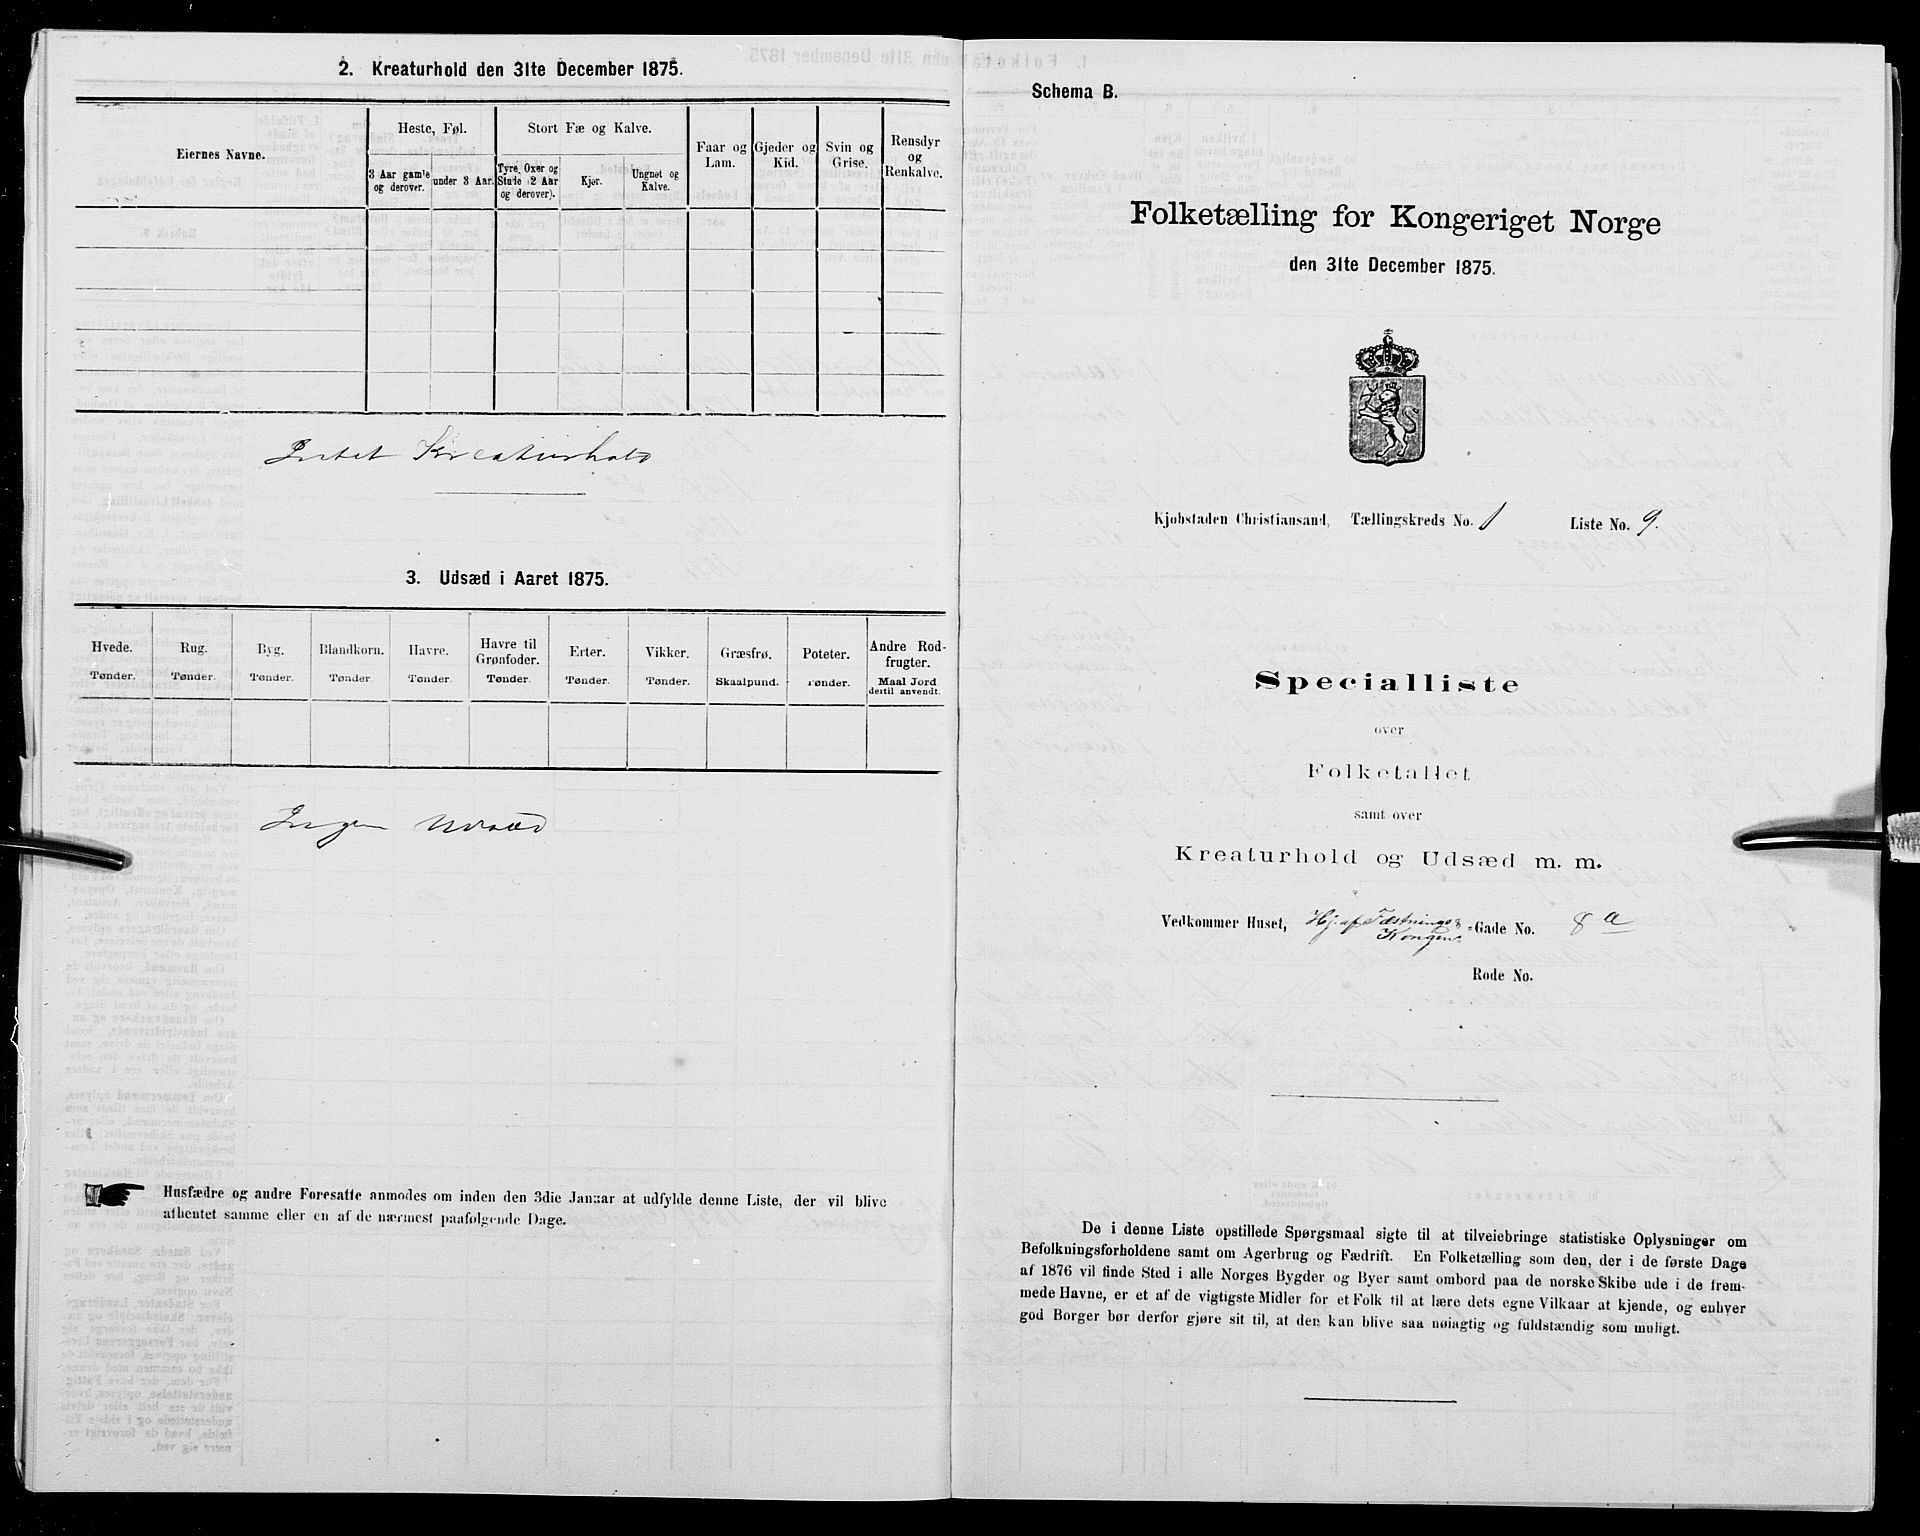 2. Kreaturhold den 31te December 1875.
Eiernes Navne.
Heste, Føl.
Stort Fæ og Kalve.
Faar og Lam.
Gjeder og Kid.
Svin og Grise.
Rensdyr og Renkalve.
3 Aar gamle og derover.
under 3 Aar.
Tyre, Oxer og Stude 2 Aar og derover).
Kjør.
Ungnøt og Kalve.
Intet Kreaturhold
3. Udsæd i Aaret 1875.
Hvede.
Rug.
Byg.
Blandkorn.
Havre.
Havre til Grønfoder.
Erter.
Vikker.
Græsfrø.
Poteter.
Andre Rodfrugter.
Tønder.
Tønder.
Tønder.
Tønder
Tønder.
Tønder.
Tønder.
Tønder.
Skaalpund.
Tønder.
Maal Jord dertil anvendt.
Ingen Udsæd
Husfædre og andre Foresatte anmodes om inden den 3die Januar at udfylde denne Liste, der vil blive
afhentet samme eller en af de nærmest paafølgende Dage.
Schema B.
Folketælling for Kongeriget Norge
den 31te December 1875.
Kjøbstaden Christiansand, Tællingskreds No. 1 Liste No. 9.
Specialliste
over
Folketallet
samt over
Kreaturhold og Udsæd m. m.
Vedkommer Huset, Hj. af Fæstnings &
Kongens - Gade No. 8 a
Rode No.
De i denne Liste opstillede Spørgsmaal sigte til at tilveiebringe statistiske Oplysninger om
Befolkningsforholdene samt om Agerbrug og Fædrift. En Folketælling som den, der i de første Dage
af 1876 vil finde Sted i alle Norges Bygder og Byer samt ombord paa de norske Skibe ude i de frem-
mede Havne, er et af de vigtigste Midler for et Folk til at lære dets egne Vilkaar at kjende, og enhver
god Borger bør derfor gjøre sit til, at den kan blive saa nøiagtig og fuldstændig som muligt.